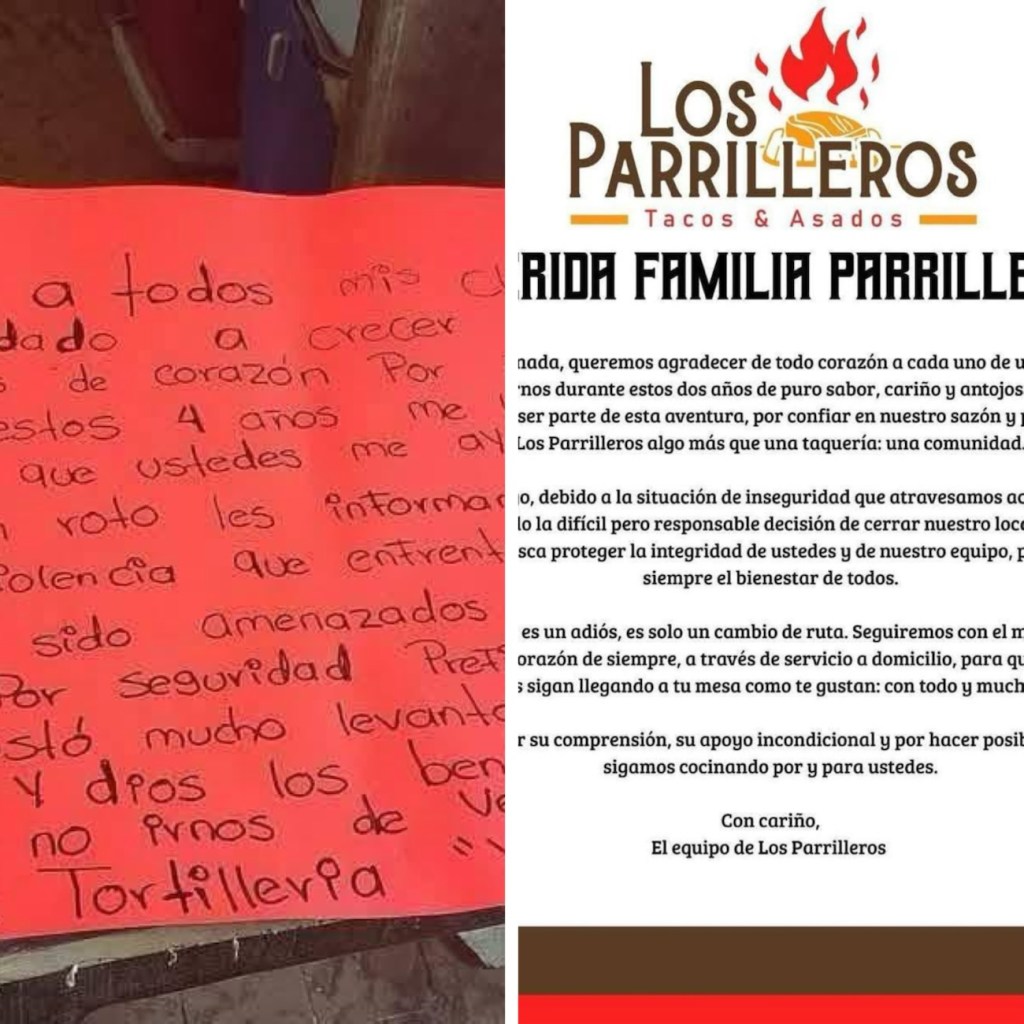 a todos mis cl
dado a crecer
s de corazón Por
estos 4 años me
que ustedes me ay
n roto les informar
iolencia que enfrent
sido amenazados
Por seguridad Pref
stó mucho levanta
Y dios los ben
no irnos de ve
Tortilleria
LOS
PARRILLEROS
Tacos & Asados
ERIDA FAMILIA PARRILLE
nada, queremos agradecer de todo corazón a cada uno de u
rnos durante estos dos años de puro sabor, cariño y antojos
ser parte de esta aventura, por confiar en nuestro sazón y p
Los Parrilleros algo más que una taquería: una comunidad.
o, debido a la situación de inseguridad que atravesamos ac
do la difícil pero responsable decisión de cerrar nuestro loca
sca proteger la integridad de ustedes y de nuestro equipo, p
siempre el bienestar de todos.
es un adiós, es solo un cambio de ruta. Seguiremos con el m
orazón de siempre, a través de servicio a domicilio, para qu
s sigan llegando a tu mesa como te gustan: con todo y much
r su comprensión, su apoyo incondicional y por hacer posib
sigamos cocinando por y para ustedes.
Con cariño,
El equipo de Los Parrilleros